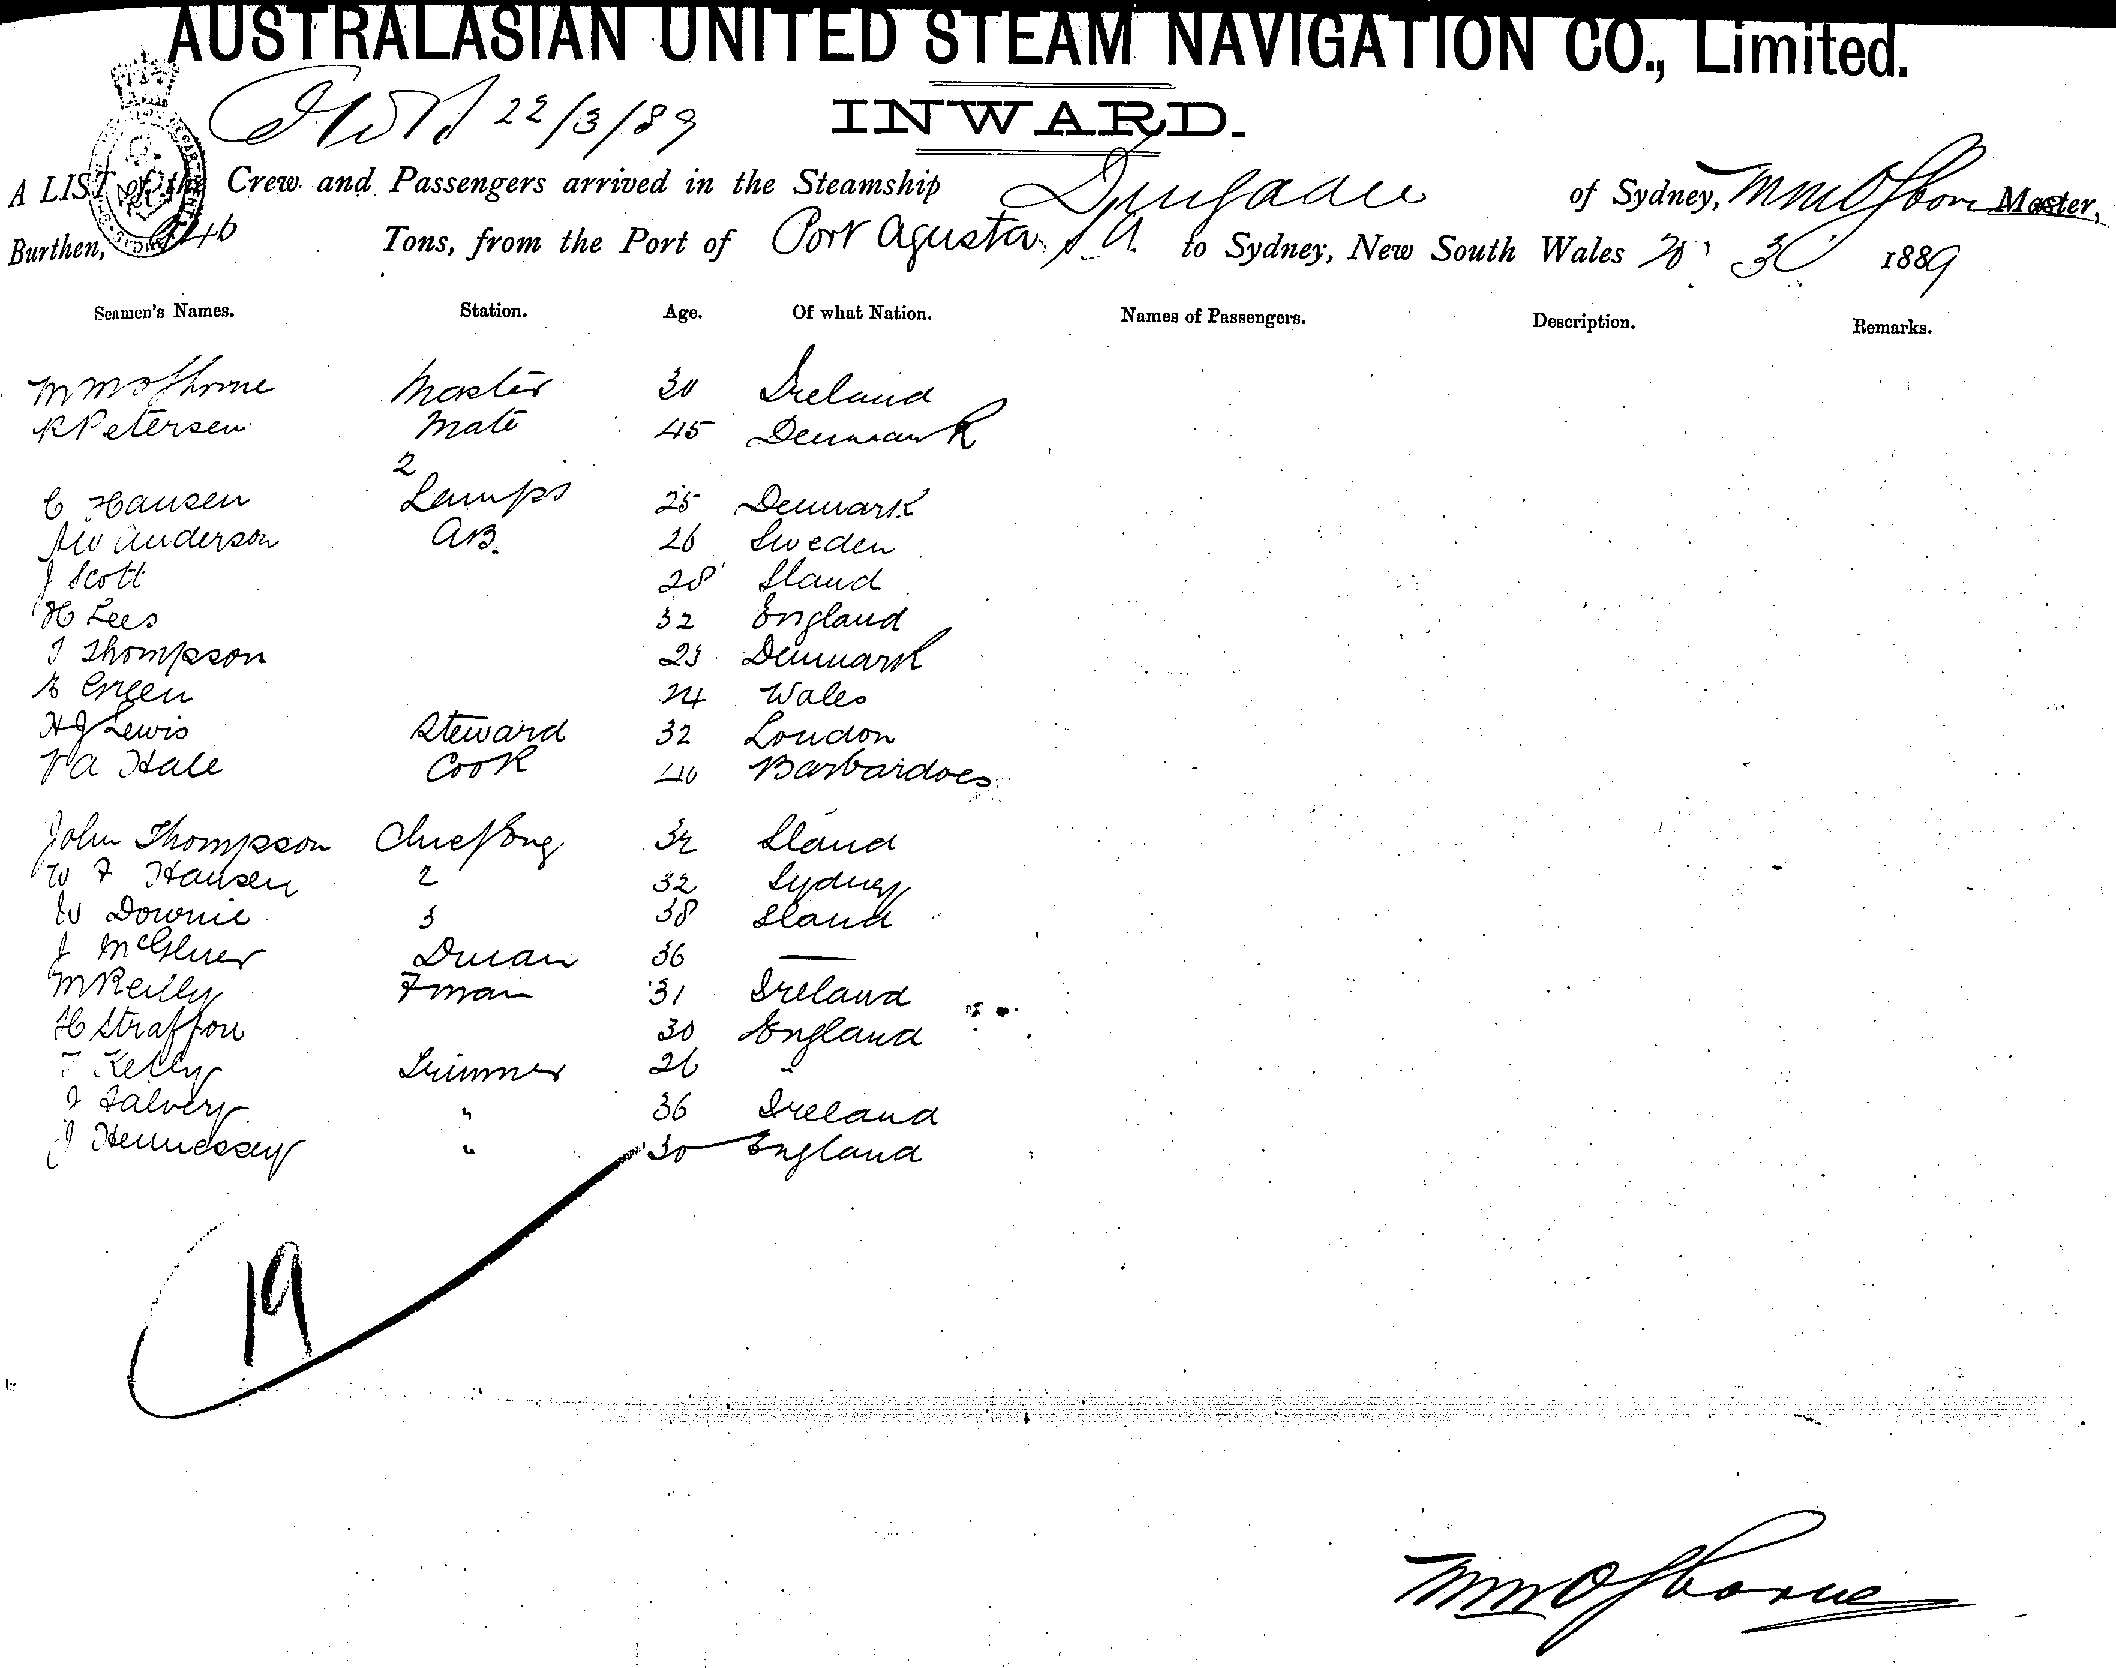 AUSTRALASIAN UNITED STEAM NAVIGATION CO., Limited.
22/3/89
INWARD.
A LIST of the Crew and Passengers arrived in the Steamship Dungadee of Sydney, M M Osborne Master,
Burthen, Tons, from the Port of Port Agusta S A. to Sydney, New South Wales 20 3 1889
Seamen's Names. Station. Age. Of what Nation. Names of Passengers. Description. Remarks.
M M Osborne Master 30 Ireland
R Petersen Mate 45 Denmark
2
C Hansen Lamps 25 Denmark
AW Anderson AB. 26 Sweden
J Scott 28 Sland
H Lees 32 England
J Thompson 23 Denmark
E Green 24 Wales
H J Lewis Steward 32 London
A Hale Cook 40 Barbardoes
John Thompson Chief Eng 32 Sland
W F Hansen 2 32 Sydney
W Downie 3 38 Sland
J Dman 36 —
M Reilly Fman 31 Ireland
H Straffon 30 England
T Kelly Trimmer 26 "
J Falvery " 36 Ireland
J Hennessey " 30 England
19
M M Osborne